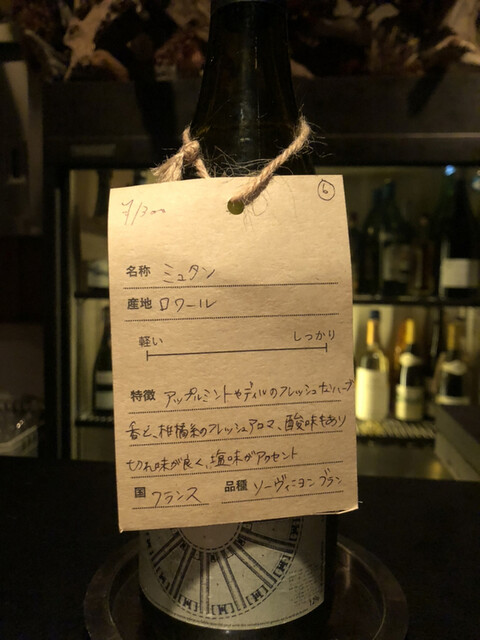 ⑥
名称 ミュタン
産地 ロワール
軽い しっかり
特徴 アップルミントやディルのフレッシュなハーブ
香と、柑橘系のフレッシュアロマ、酸味もあり
切れ味が良く、塩味がアクセント
国 フランス 品種 ソーヴィニヨン ブラン